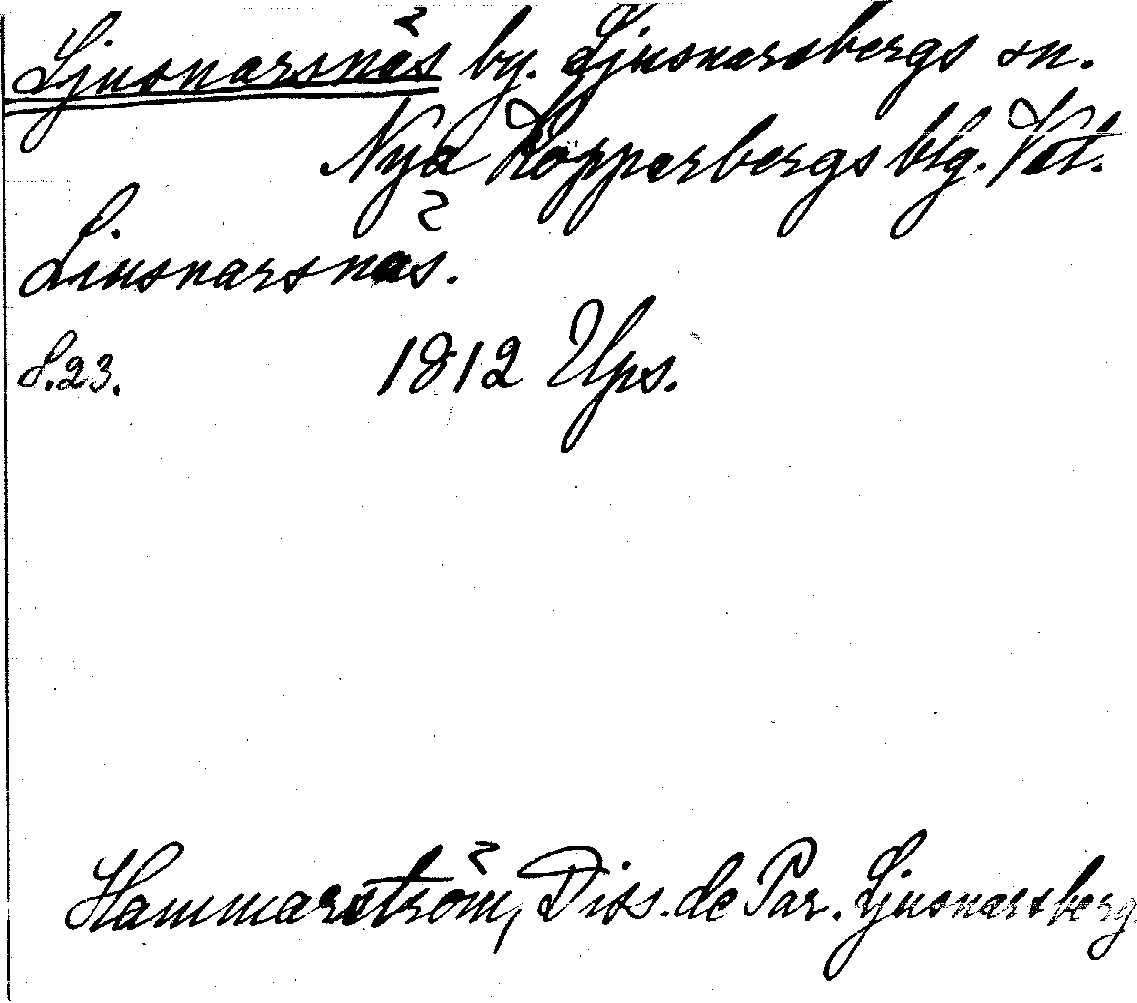 Ljusnarsnäs by. Ljusnarsbergs sn.
Nya Kopparbergs blg. Vst.
Liusnarsnäs.
S. 23. 1812 Ups.
Hammarström, Diss. de Par. Ljusnarsberg